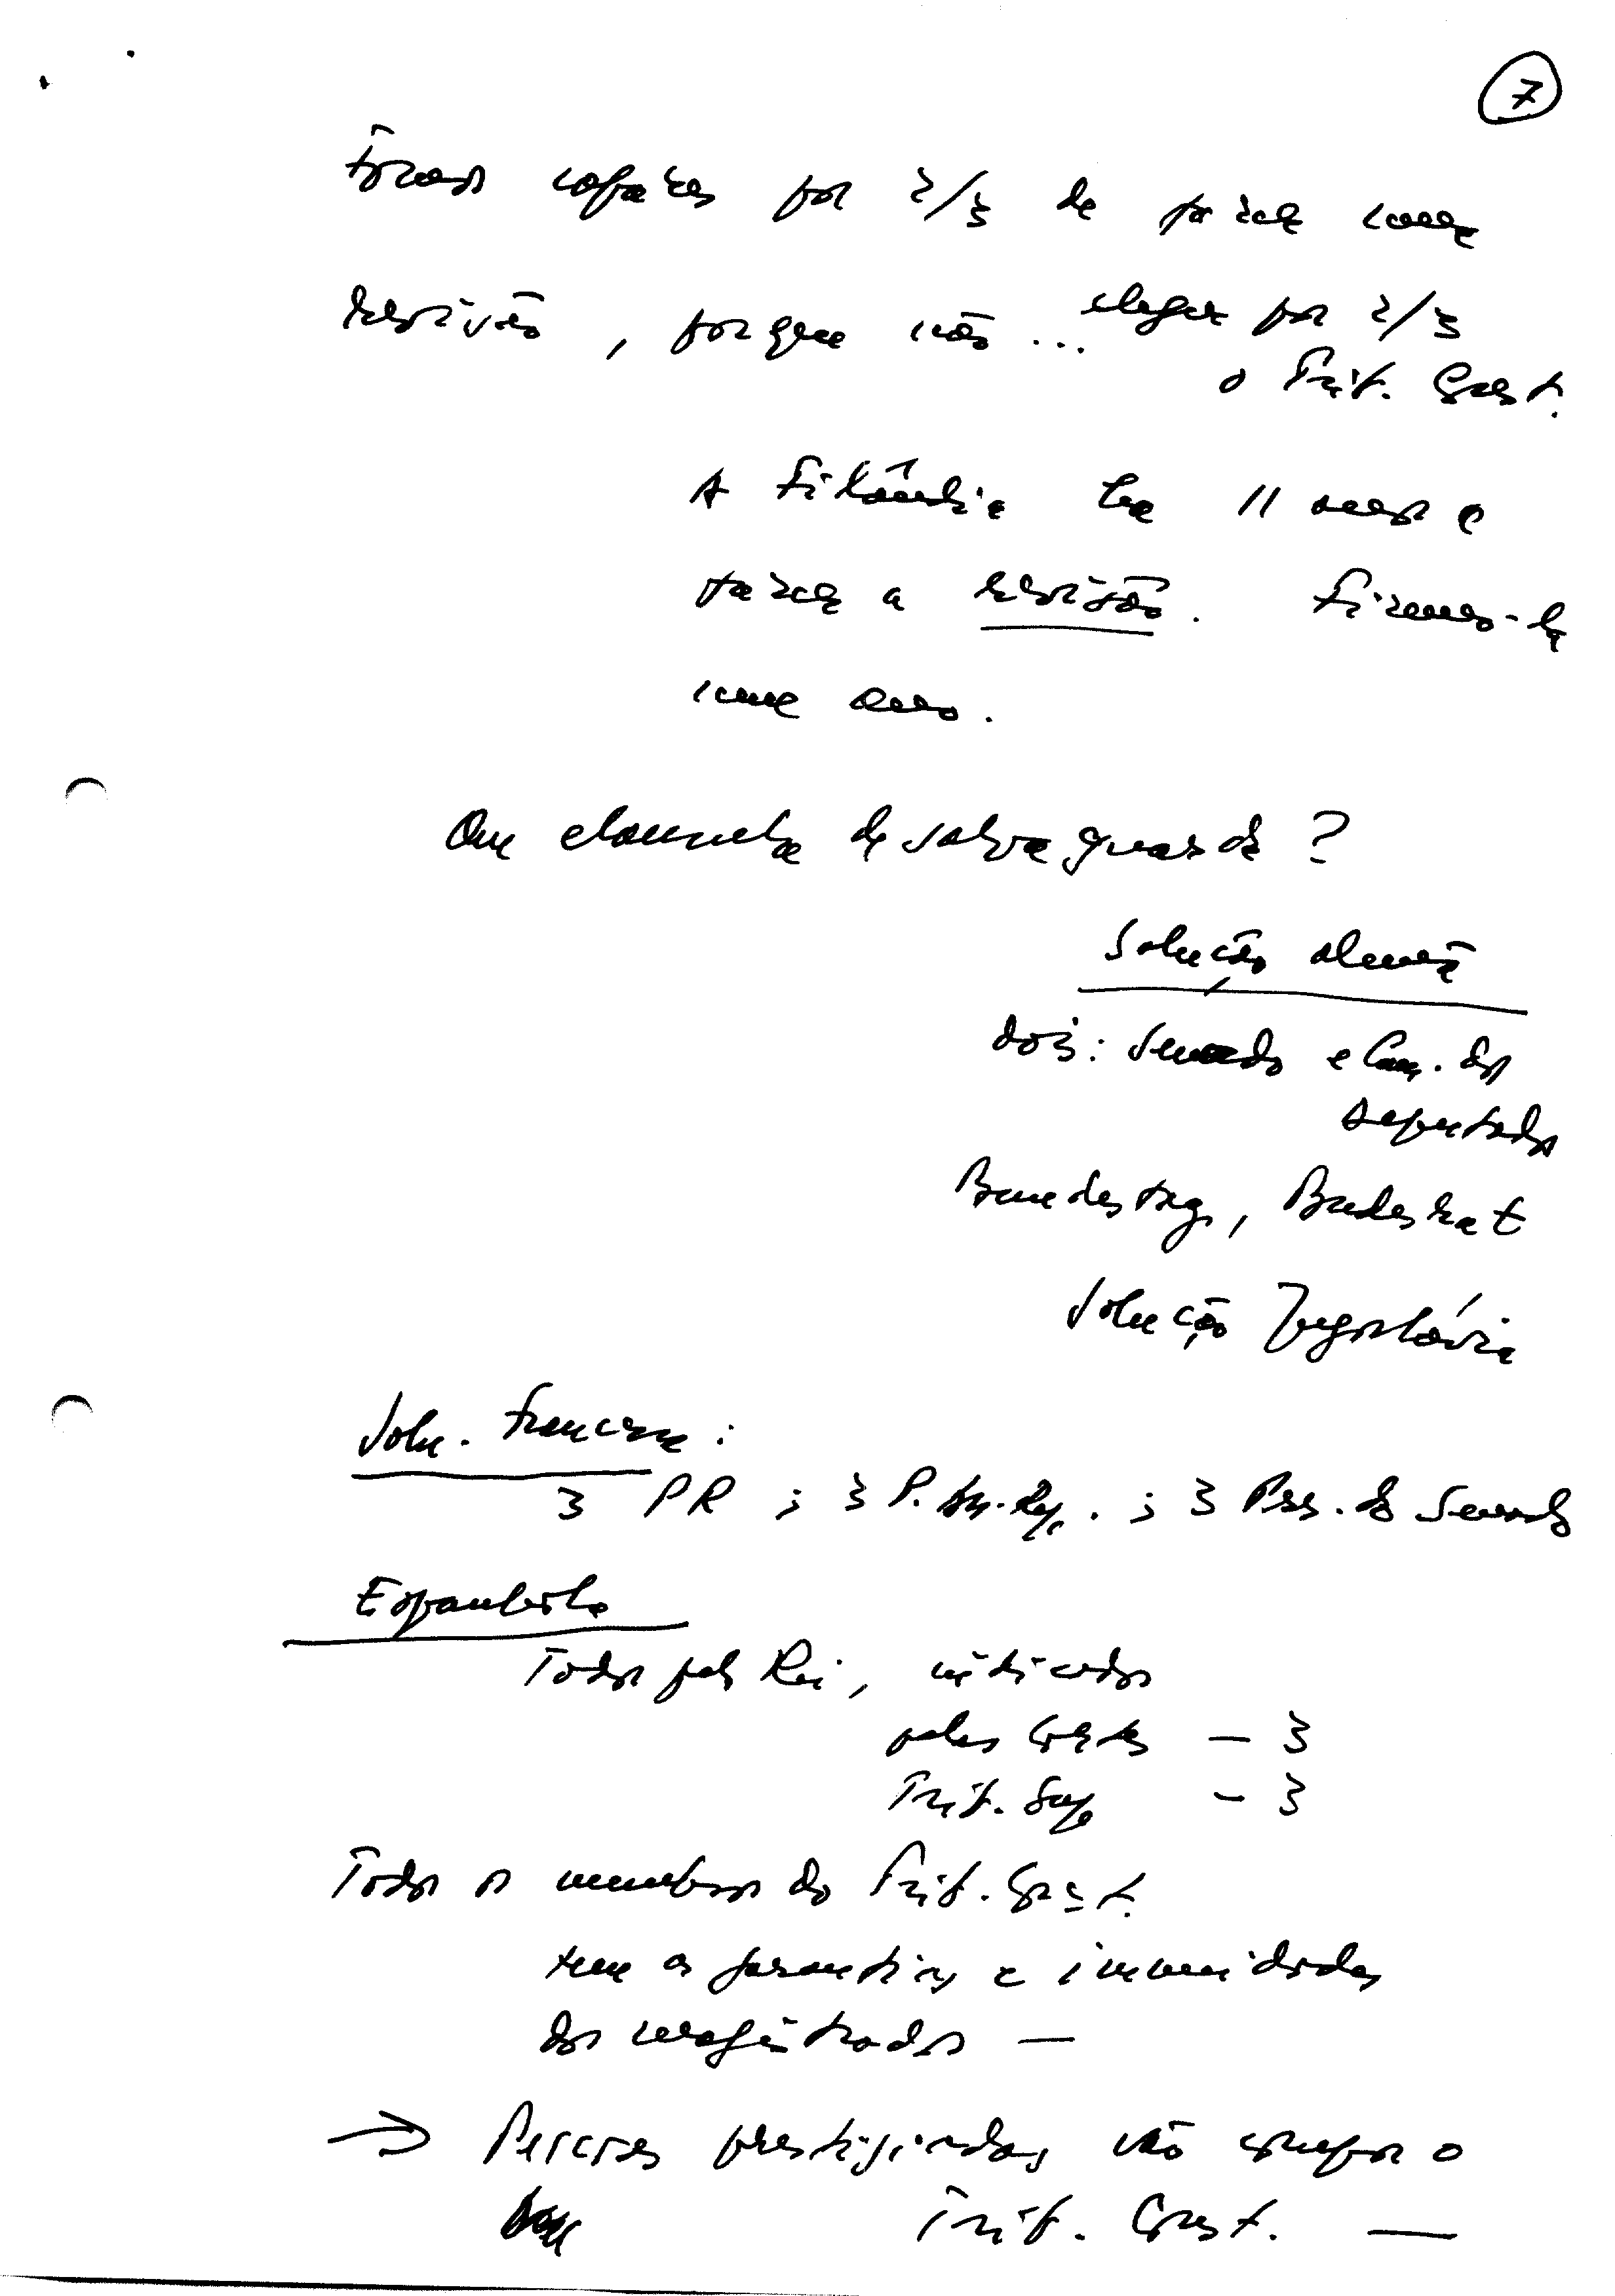 7
Foram capazes por 2/3 de fazer uma
revisão, porque não ... eleger por 2/3
o Trib. Const.
A Finlândia 11 anos e
fazer a revisão. Fizemo-la
num ano.
Que cláusula de salvaguarda ?
Solução alemã
dois: Senado e Câm. dos
deputados
Bundestag, Bundesrat
Solução Jugoslávia
Solu. francesa :
3 PR ; 3 P. As. Rep. ; 3 Pres. do Senado
Espanhola
Todos pelo Rei, indicados
pelas Cortes — 3
Trib. Sup — 3
Todos os membros do Trib. Const.
tem as garantias e imunidades
dos magistrados —
→ Pessoas prestigiadas, vão compor o
Trib. Const. —